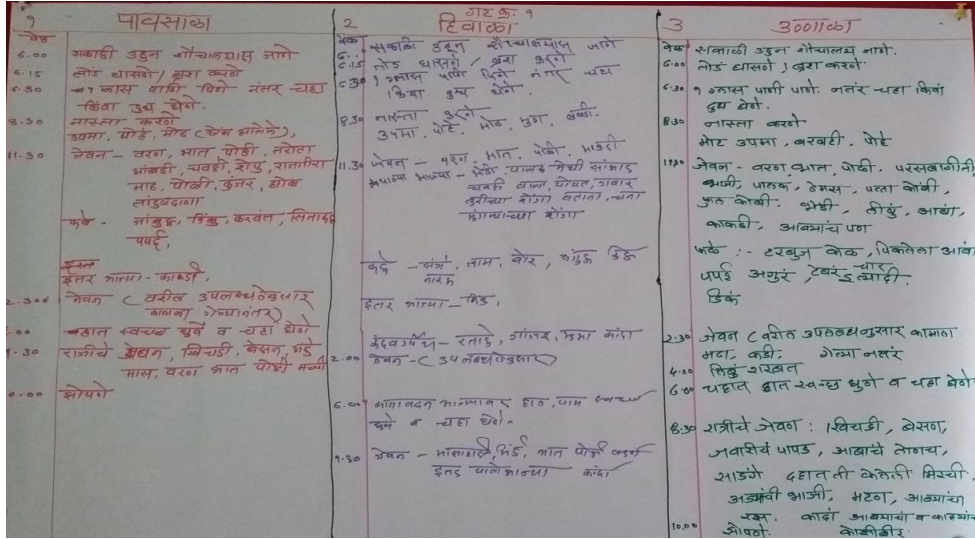 गट क्र. १
१ पावसाळा
वेळ
6.00 सकाळी उठुन शौचालयास जाणे
6.15 तोंड घासणे / ब्रश करणे
6.30 ग्लास पाणी पिणे नंतर चहा
किंवा दुध घेणे.
8.30 नास्ता करणे
उपमा, पोहे, मोठ
11.30 जेवन - वरण, भात पोळी, तरोटा
चवळी, शेपु, राजगीरा
माठ, पोळी, कुंजर, घोळ
तांदुळदाना
फळे - जांभुळ, निंबु, करवत, सिताफळ
पपई,
इतर भाज्या - काकडी,
जेवन (वरील उपलब्धतेनुसार
हात स्वच्छ धुणे व चहा घेणे
रात्रीचे जेवन, खिचडी, बेसन, अंडे
मास, वरण भात पोळी मच्छी
झोपणे
2 हिवाळा
वेळ सकाळी उठून शौच्यालयास जाणे
6.15 तोंड घासणे / ब्रश करणे
6.30 १ ग्लास पाणी पिणे नंतर चहा
किंवा दुध घेणे.
8.30 नास्ता करणे
उपमा, पोहे, मोठ, मुग,
11.30 जेवन - वरण, भात, पोळी, भाकरी
भाज्या - मेथी, पालक मेथी सांभार
चवळी वाल, पोपट, गवार
तुरीच्या शेंगा वटाना, चना
शेंगा
फळे - संत्रा, जाम, बोर,
इतर भाज्या -
कंदवर्गीय - रताळे, गांजर, मुळा कांदा
2.00 जेवन - (उपलब्धतेनुसार)
6.00 हात, पाय स्वच्छ
धुणे व चहा घेणे.
9.30 जेवन - अंडे, भात पोळी वरण
इतर पालेभाज्या कांदा
3 उन्हाळा
वेळ सकाळी उठुन शौचालय जाणे.
6.00 तोंड घासणे / ब्रश करणे
6.30 १ ग्लास पाणी पाणे. नतंर चहा किंवा
दुध घेणे.
8.30 नास्ता करणे
मोट उपमा, बरबटी, पोहे
11.30 जेवन - वरण भात, पोळी. परसबागीतील
भाजी, पालक, टेमस, पत्ता कोबी,
फुल कोबी. भेंडी, लींबु, आंबा,
काकडी, आंब्याच पण
फळे :- टरबुज केळ, पिकलेला आंबा
पपई अंगुरं, टेंबरं, चारं इत्यादी.
डिंक
2.30 जेवन (वरील उपलब्धनुसार कामाला
गेल्या नतंर
मठा, कढी.
4.00 लिंबु शरबत
6.00 चहात हात स्वच्छ धुणे व चहा घेणे
8.30 रात्रीचे जेवण : खिचडी, बेसण,
जवारीचे पापड, आंबाचे लोणच,
सांडगे दहातली केलेली मिरची.
अंड्यांची भाजी, मटण, आंब्यांचा
रस. कांदा आंब्याचा व काद्यांच
कोशींबीर
10.00 झोपणे.